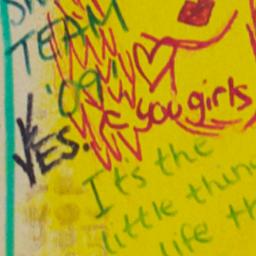 TEAM
'09!
YES.
you girls
It's the
little thin
life th